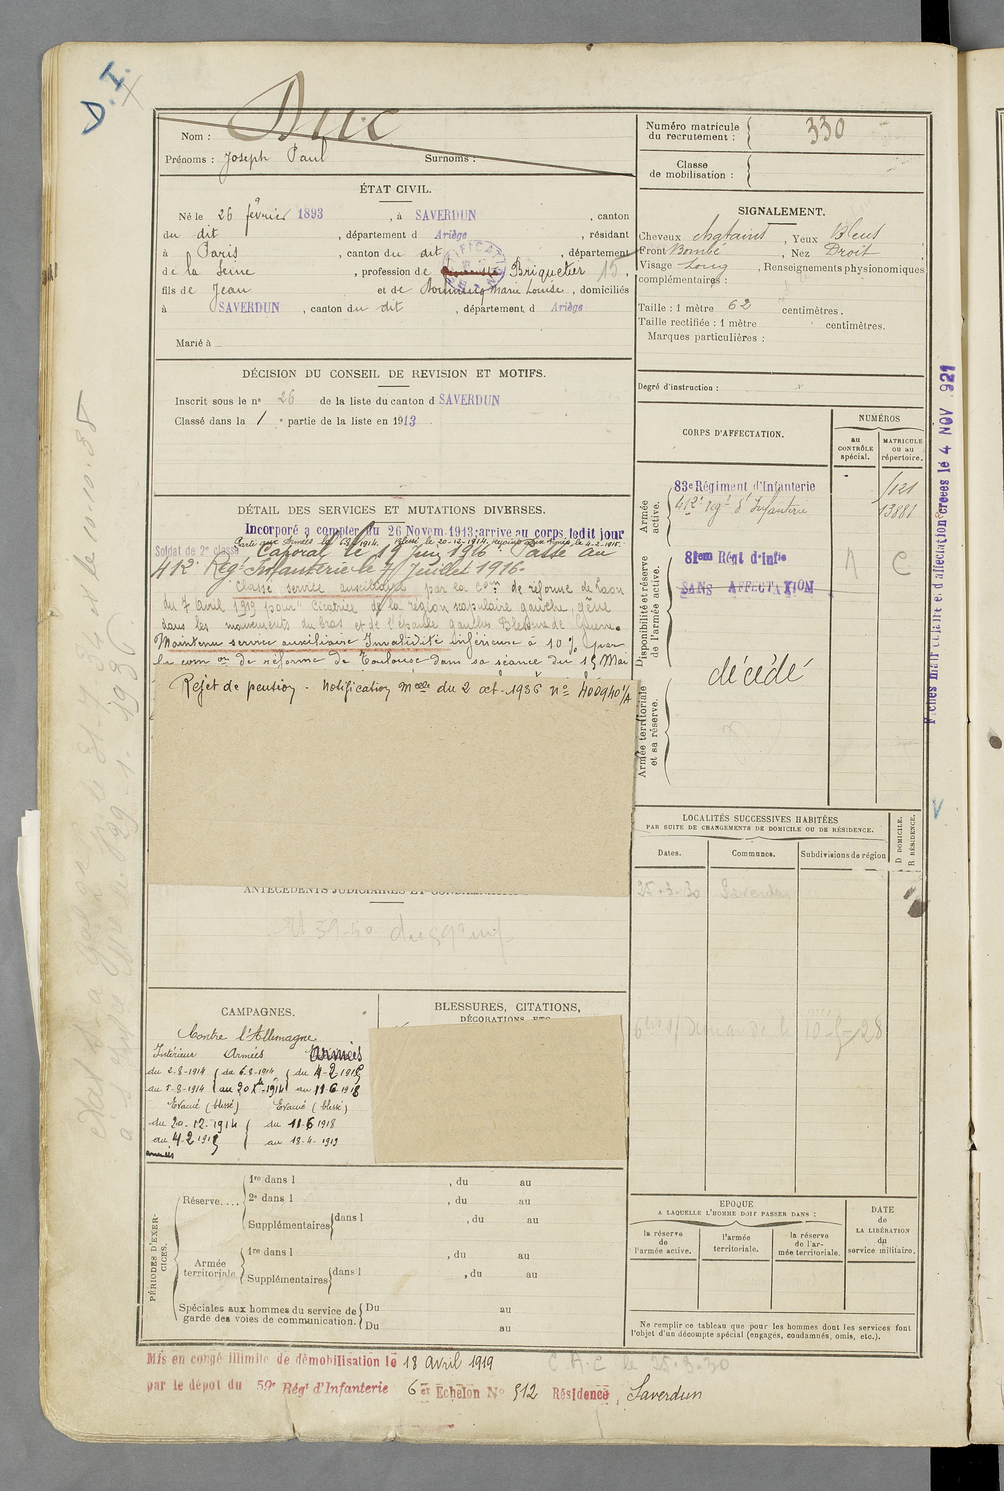 D.I.
Nom : Duc
Prénoms : Joseph Paul Surnoms :
Numéro matricule du recrutement : 330
Classe de mobilisation :
ÉTAT CIVIL.
Né le 26 février 1893, à SAVERDUN, canton
du dit, département d Ariège, résidant
à Paris, canton du dit, département
de la Seine, profession de Briquetier 15,
fils de Jean et de Marie Louise, domiciliés
à SAVERDUN, canton du dit, département d Ariège
Marié à
SIGNALEMENT.
Cheveux chatains, Yeux Bleus
Front Bombé, Nez Droit
Visage Long, Renseignements physionomiques
complémentaires :
Taille : 1 mètre 62 centimètres.
Taille rectifiée : 1 mètre centimètres.
Marques particulières :
Degré d'instruction :
DÉCISION DU CONSEIL DE REVISION ET MOTIFS.
Inscrit sous le nº 26 de la liste du canton d SAVERDUN
Classé dans la 1e partie de la liste en 1913
DÉTAIL DES SERVICES ET MUTATIONS DIVERSES.
Incorporé a compter du 26 Novem. 1913; arrive au corps ledit jour
Parti aux Armées le 6.8.1914. Blessé le 20-12-1914. rejoint aux armées le 4-2-1915.
Soldat de 2e classe Caporal le 19 Juin 1916. Passé au
412e Reg. Infanterie le 7 Juillet 1916.
Classé service auxiliaire par la Com on de réforme de Laon
du 7 avril 1919 pour "Cicatrice de la région scapulaire gauche, gêne
dans les mouvements du bras et de l'épaule gauches. Blessure de Guerre.
Maintenu service auxiliaire Invalidité inférieure à 10 % par
la com on de réforme de Toulouse dans sa séance du 15 Mai
Rejet de pension. Notification melle du 2 oct. 1936 nº 400940/A
ANTÉCÉDENTS JUDICIAIRES ET
CORPS D'AFFECTATION.
NUMÉROS
au CONTRÔLE spécial.
MATRICULE ou au répertoire.
Armée active.
83e Régiment d'Infanterie
412e regt d'Infanterie
13881
Disponibilité et réserve de l'armée active.
81em Régt d'Infie
SANS AFFECTATION
A C
Armée territoriale et sa réserve.
décédé
Fiches matriculaire et d'affectation créées le 4 NOV 1921
LOCALITÉS SUCCESSIVES HABITÉES
PAR SUITE DE CHANGEMENTS DE DOMICILE OU DE RÉSIDENCE.
D. DOMICILE. R RÉSIDENCE.
Dates. Communes. Subdivisions de région
25.3.30 Saverdun
CAMPAGNES.
Contre l'Allemagne
Intérieur Armées Armées
du 2-8-1914 du 6-8-1914 du 4-2 1915
au 5-8-1914 au 20 Xbre 1914 au 11-6 1918
Evacué (blessé) Evacué (blessé)
du 20-12-1914 du 11-6 1918
au 4-2 1915 au 18-4-1919
BLESSURES, CITATIONS,
DÉCORATIONS, ETC.
PÉRIODES D'EXERCICES.
Réserve....
1re dans l , du au
2e dans l , du au
Supplémentaires dans l , du au
Armée territoriale
1re dans l , du au
Supplémentaires dans l , du au
Spéciales aux hommes du service de garde des voies de communication.
Du au
Du au
EPOQUE
A LAQUELLE L'HOMME DOIT PASSER DANS :
la réserve de l'armée active.
l'armée territoriale.
la réserve de l'armée territoriale.
DATE de LA LIBÉRATION du service militaire.
Ne remplir ce tableau que pour les hommes dont les services font
l'objet d'un décompte spécial (engagés, condamnés, omis, etc.).
Mis en congé illimité de démobilisation le 18 Avril 1919
C.A.C le 25.3.30
par le dépôt du 59e Régt d'Infanterie 6e Echelon Nº 512 Résidence, Saverdun